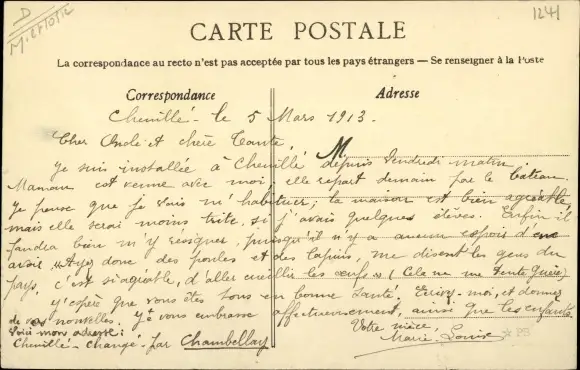 D
Mietotic
1241
CARTE POSTALE
La correspondance au recto n'est pas acceptée par tous les pays étrangers — Se renseigner à la Poste
Correspondance
Adresse
Chenillé - le 5 Mars 1913.
Cher Oncle et chère Tante,
M
Je suis installée à Chenillé depuis Vendredi matin.
Maman est venue avec moi, elle repart demain par le bateau.
Je pense que je vais m'habituer; la maison est bien agréable,
mais elle serai moins triste, si j'avais quelques élèves. Enfin il
faudra bien m'y résigner, puisqu'il n'y a aucun espoir d'en
avoir. "Ayez donc des poules et des lapins, me disent les gens du
pays, c'est si agréable, d'aller cueillir les œufs" (Cela ne me tente guère)
J'espère que vous êtes tous en bonne santé. Ecrivez-moi, et donnez
de vos nouvelles. Je vous embrasse affectueusement, ainsi que les enfants
Votre nièce,
Marie-Louise
Voici mon adresse:
Chenillé-Changé - par Chambellay
PS